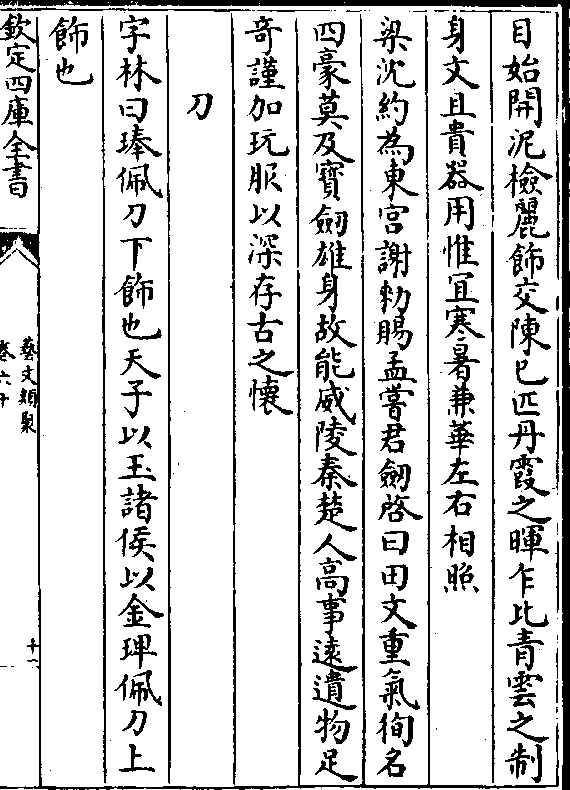 目始開泥檢麗飾交陳已匹丹霞之暉乍比青雲之制
身文且貴器用惟宜寒暑兼華左右相照
梁沈約為東宫謝勑賜孟嘗君劒啓曰田文重氣徇名
四豪莫及寳劒雄身故能威陵秦楚人髙事遠遺物足
竒謹加玩服以深存古之懷
刀
字林曰琫佩刀下飾也天子以玉諸侯以金琕佩刀上
飾也
欽定四庫全書
藝文類聚
卷六十
十一